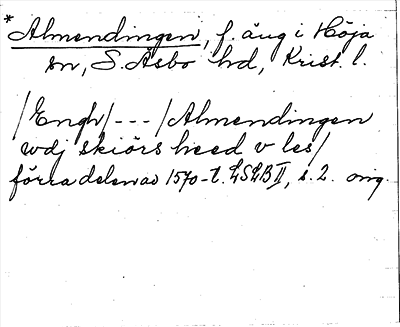 *Almendingen, f. äng i Höja
sn, S. Åsbo hd, Krist. l.
/Engh/---/Almendingen
wdj skiörs heed v les/
förra delen av 1570-t. LSLB II, s. 2. orig.